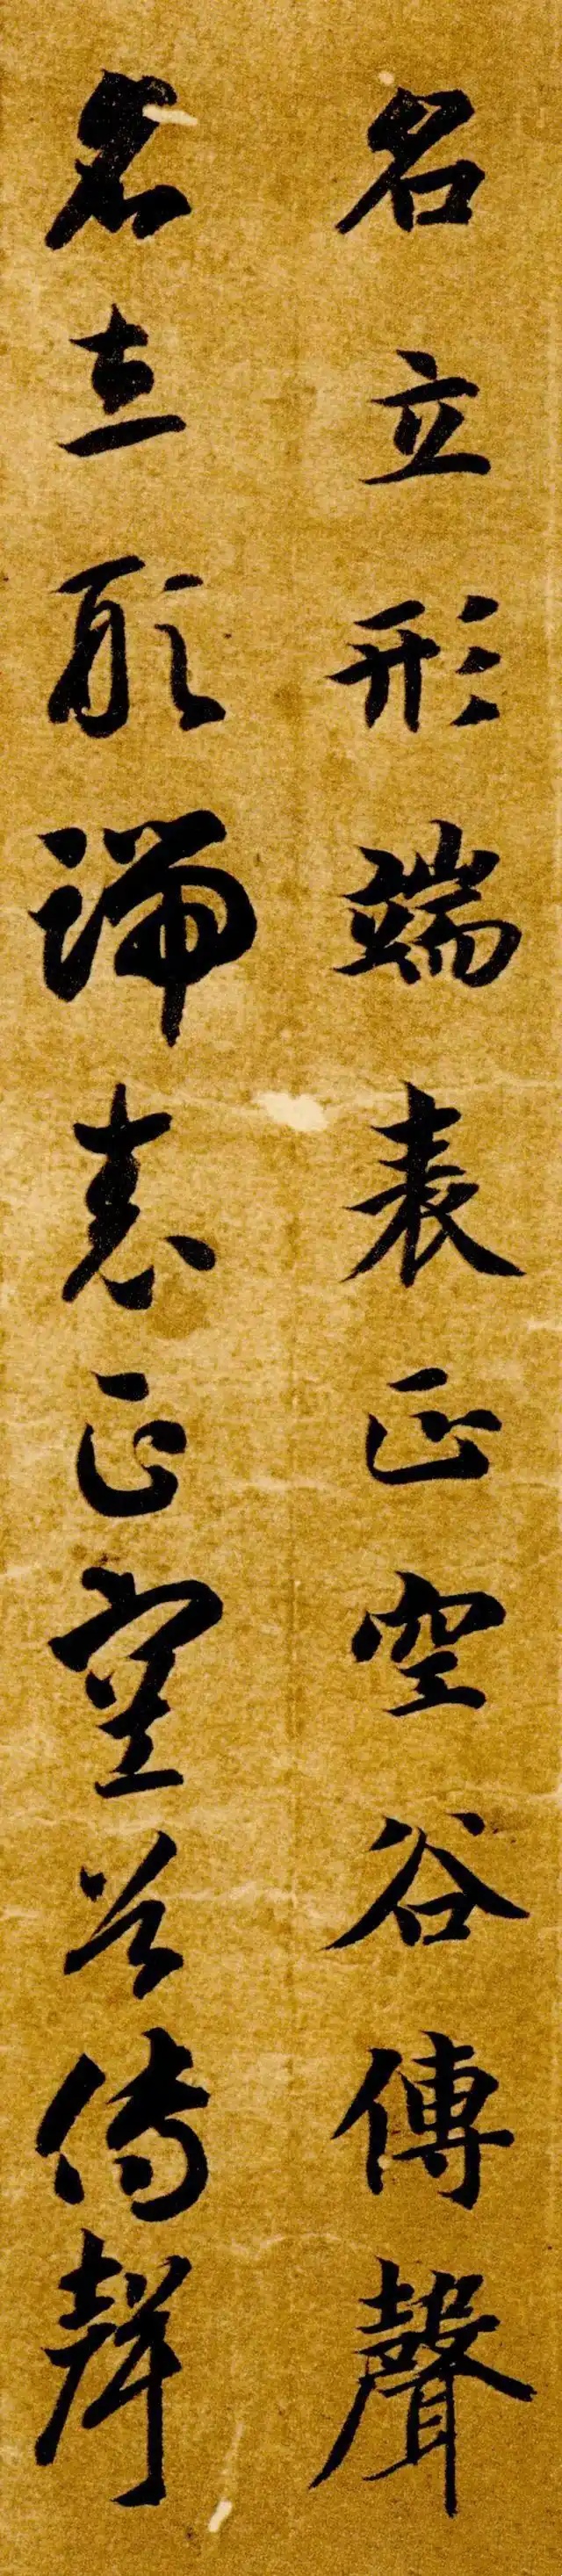 名立形端表正空谷傳聲
名立形端表正空谷傳聲